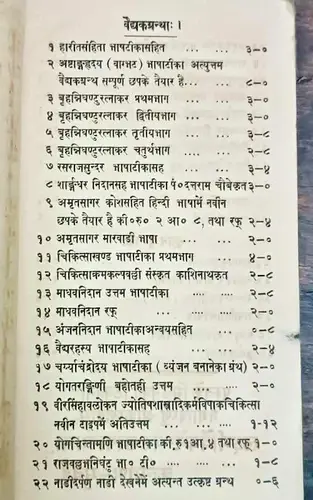 वैद्यकग्रन्थाः ।
१ हारीतसंहिता भाषाटीकासहित ... ... ३-०
२ अष्टाङ्गहृदय (वाग्भट) भाषाटीका अत्युत्तम
वैद्यकग्रन्थ सम्पूर्ण छपके तैयार है... ... ८-०
३ बृहन्निघण्टुरत्नाकर प्रथमभाग ... ... ३-०
४ बृहन्निघण्टुरत्नाकर द्वितीयभाग ... ... ३-०
५ बृहन्निघण्टुरत्नाकर तृतीयभाग ... ... ३-८
६ बृहन्निघण्टुरत्नाकर चतुर्थभाग .... ... २-८
७ रसराजसुन्दर भाषाटीकासह ... ... ३-८
८ शार्ङ्गधर निदानसह भाषाटीका पं०दत्तराम चौबेकृत ३-०
९ अमृतसागर कोशसहित हिन्दी भाषामें नवीन
छपके तैयार है की०रु० २ आ० ८, तथा रफ् २-४
१० अमृतसागर मारवाडी भाषा ... ... २-०
११ चिकित्साखण्ड भाषाटीका प्रथमभाग ... ४-०
१२ चिकित्साक्रमकल्पवल्ली संस्कृत काशिनाथकृत २-८
१३ माधवनिदान उत्तम भाषाटीका .... .... २-८
१४ माधवनिदान रफ् .... .... २-०
१५ अंजननिदान भाषाटीकाअन्वयसहित ... ०-८
१६ वैद्यरहस्य भाषाटीकासह ... ... २-४
१७ चर्य्याचंद्रोदय भाषाटीका (व्यंजन बनानेका ग्रंथ) २-०
१८ योगतरङ्गिणी बहोतही उत्तम ... ... २-०
१९ वीरसिंहावलोकन ज्योतिषशास्त्रादिकर्मविपाकचिकित्सा
नवीन टाइपमें अतिउत्तम ... ... १-१२
२० योगचिन्तामणि भाषाटीका की.रु१आ.४ तथा रफ् १-०
२१ राजवल्लभनिघंटु भा० टी० .... .... १-८
२२ नाडीदर्पण नाडी देखनेमें अत्यन्त उत्कृष्ट ग्रन्थ ०-६